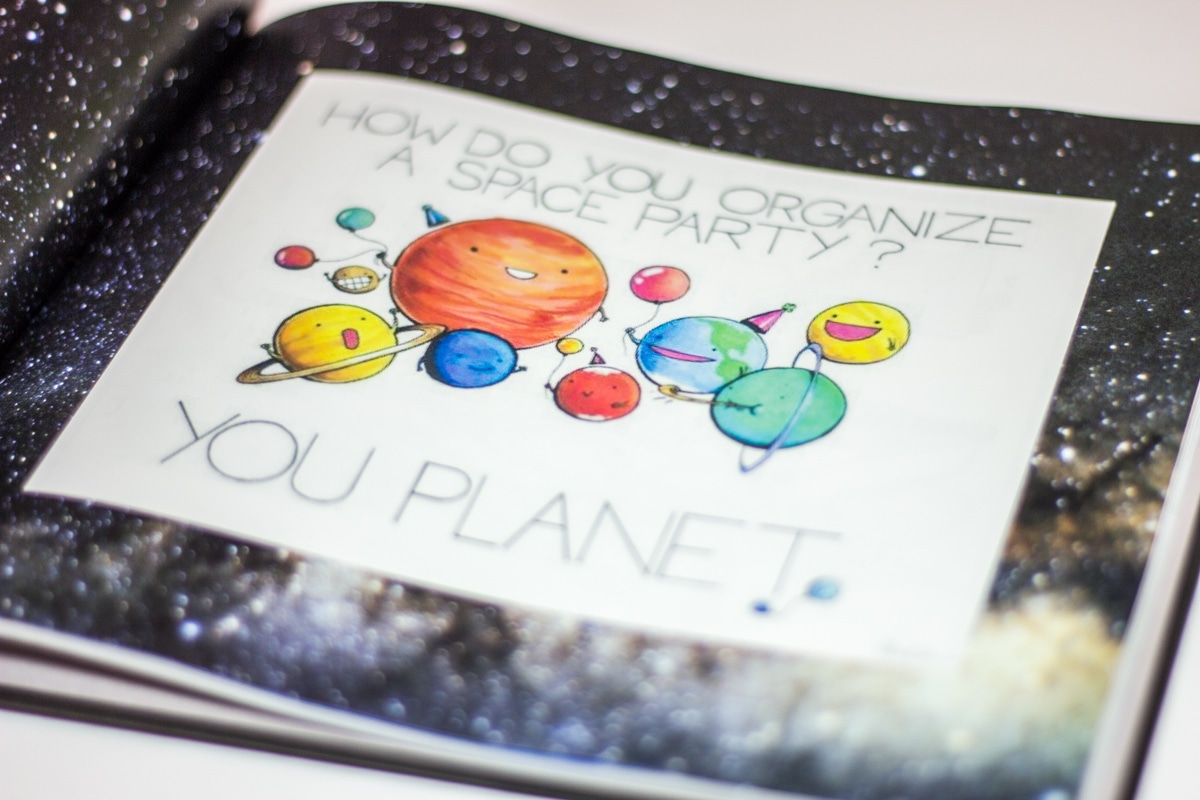 HOW DO YOU ORGANIZE
A SPACE PARTY?
YOU PLANET.